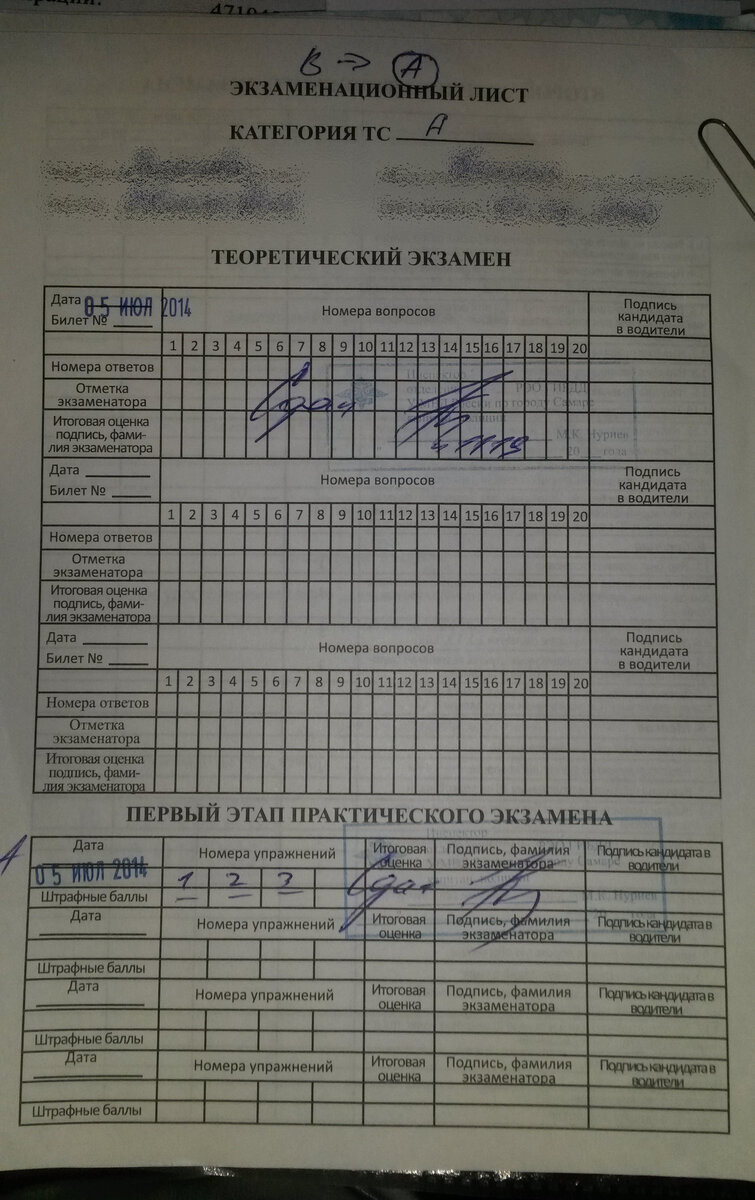 рации.
47104
В → А
ЭКЗАМЕНАЦИОННЫЙ ЛИСТ
КАТЕГОРИЯ ТС А
ТЕОРЕТИЧЕСКИЙ ЭКЗАМЕН
Дата 05 ИЮЛ 2014
Билет № ______
Номера вопросов
Подпись кандидата в водители
1 2 3 4 5 6 7 8 9 10 11 12 13 14 15 16 17 18 19 20
Номера ответов
Отметка экзаменатора
Итоговая оценка подпись, фами-
лия экзаменатора
Сдал
Инспектор
РЭО ГИБДД
по городу Самаре
М.К. Нуриев
20 года
Дата ______
Билет № ______
Номера вопросов
Подпись кандидата в водители
1 2 3 4 5 6 7 8 9 10 11 12 13 14 15 16 17 18 19 20
Номера ответов
Отметка экзаменатора
Итоговая оценка подпись, фами-
лия экзаменатора
Дата ______
Билет № ______
Номера вопросов
Подпись кандидата в водители
1 2 3 4 5 6 7 8 9 10 11 12 13 14 15 16 17 18 19 20
Номера ответов
Отметка экзаменатора
Итоговая оценка подпись, фами-
лия экзаменатора
ПЕРВЫЙ ЭТАП ПРАКТИЧЕСКОГО ЭКЗАМЕНА
А
Дата Номера упражнений Итоговая оценка Подпись, фамилия экзаменатора Подпись кандидата в водители
05 ИЮЛ 2014 1 2 3 Сдал
Инспектор
Самаре
М.К. Нуриев
Штрафные баллы
Дата Номера упражнений Итоговая оценка Подпись, фамилия экзаменатора Подпись кандидата в водители
Штрафные баллы
Дата Номера упражнений Итоговая оценка Подпись, фамилия экзаменатора Подпись кандидата в водители
Штрафные баллы
Дата Номера упражнений Итоговая оценка Подпись, фамилия экзаменатора Подпись кандидата в водители
Штрафные баллы